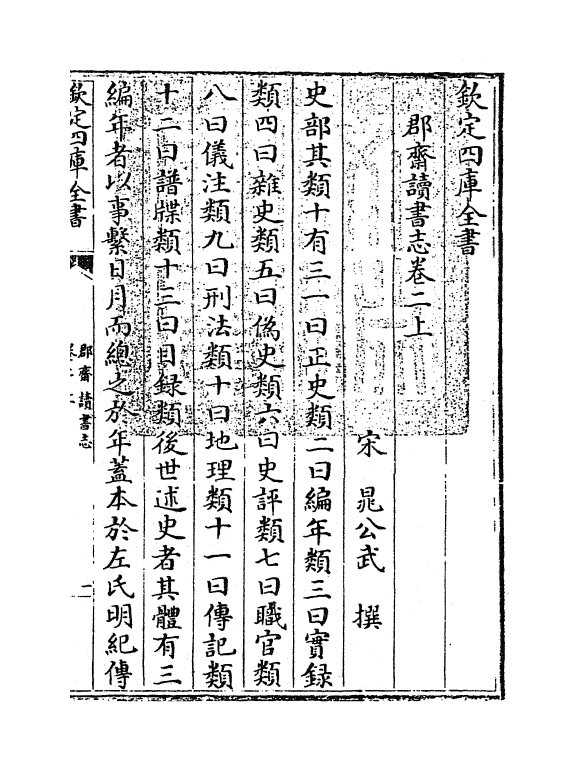 欽定四庫全書
郡齋讀書志卷二上
宋　晁公武　撰
史部其類十有三一曰正史類二曰編年類三曰實録
類四曰雜史類五曰偽史類六曰史評類七曰職官類
八曰儀注類九曰刑法類十曰地理類十一曰傳記類
十二曰譜牒類十三曰目録類後世述史者其體有三
編年者以事繫日月而總之於年蓋本於左氏明紀傳
欽定四庫全書
郡齋讀書志